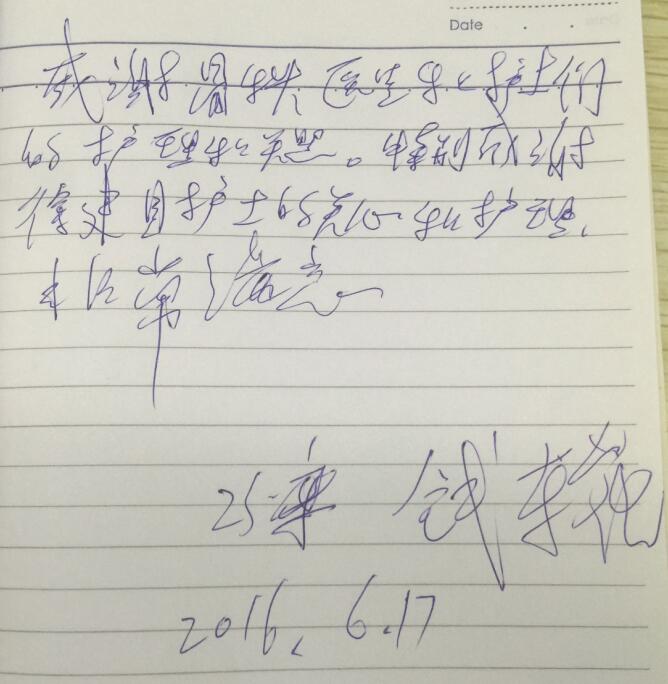 Date
感谢 医生和护士们
的护理和关照。特别感谢
护士的关心和护理,
非常满意
25床 钱
2016.6.17